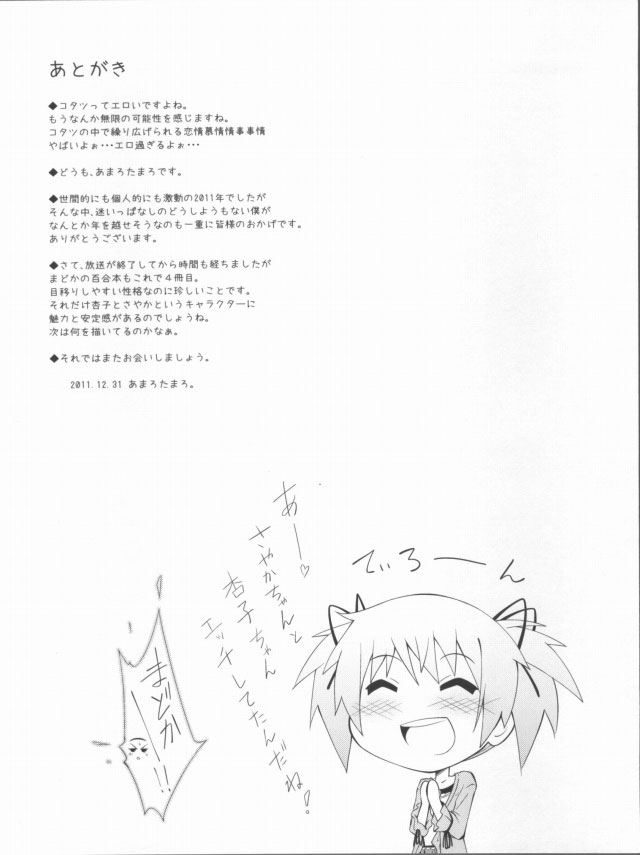 あとがき
◆コタツってエロいですよね。
もうなんか無限の可能性を感じますね。
コタツの中で繰り広げられる恋情慕情情事事情
やばいよぉ・・・エロ過ぎるよぉ・・・
◆どうも、あまろたまろです。
◆世間的にも個人的にも激動の2011年でしたが
そんな中、迷いっぱなしのどうしようもない僕が
なんとか年を越せそうなのも一重に皆様のおかげです。
ありがとうございます。
◆さて、放送が終了してから時間も経ちましたが
まどかの百合本もこれで4冊目。
目移りしやすい性格なのに珍しいことです。
それだけ杏子とさやかというキャラクターに
魅力と安定感があるのでしょうね。
次は何を描いてるのかなぁ。
◆それではまたお会いしましょう。
2011.12.31 あまろたまろ。
でぃろーん
あー♡
さやかちゃんと
杏子ちゃん
エッチしてたんだね！
まどかーー!!